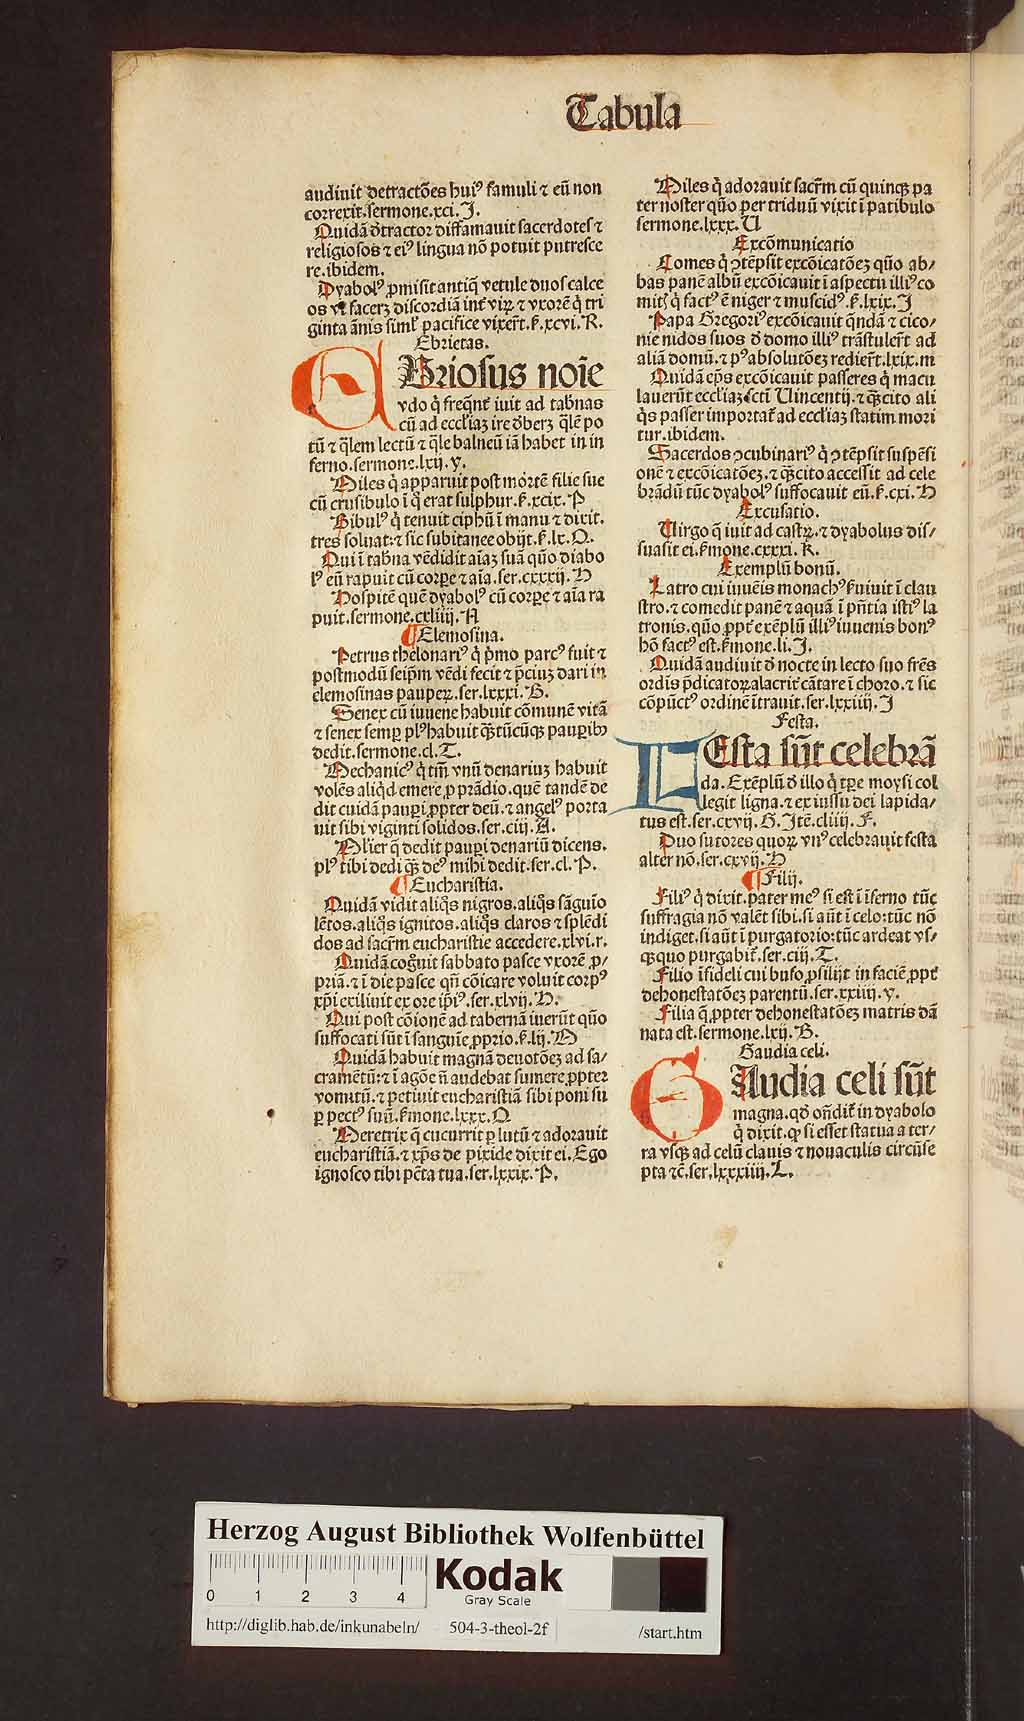 Tabula
audiuit detractões huiꝰ famuli ⁊ eũ non
correxit.sermone.xci.J.
Quidã ðtractor diffamauit sacerdotes ⁊
religiosos ⁊ eiꝰ lingua nõ potuit putresce
re.ibidem.
Dyabolꝰ ꝓmisit antiq̃ vetule duos calce
os vt facerꝫ discordiã int̃ viꝝ ⁊ vxorẽ q̃ tri
ginta ãnis simľ pacifice vixer̃t.ẜ.xcvi.R.
Ebrietas.
EBriosus noĩe
vdo q̃ freq̃nť iuit ad tab̃nas
cũ ad eccľiaꝫ ire ðberꝫ q̃lẽ po
tũ ⁊ q̃lem lectũ ⁊ q̃le balneũ iã habet in in
ferno.sermone.lxij.y.
Miles q̃ apparuit post mortẽ filie sue
cũ crusibulo ĩ q̃ erat sulphur.ẜ.xcix.P
Bibulꝰ q̃ tenuit ciphũ ĩ manu ⁊ dixit.
tres soluat:⁊ sic subitanee obijt.ẜ.lx.O.
Qui ĩ tab̃na vẽdidit aĩaꝫ suã quõ diabo
lꝰ eũ rapuit cũ corꝑe ⁊ aĩa.ser.cxxxij.H
Hospitẽ quẽ dyabolꝰ cũ corꝑe ⁊ aĩa ra
puit.sermone.cxliiij.A
¶ Elemosina.
Petrus thelonariꝰ q̃ p̃mo parcꝰ fuit ⁊
postmodũ seip̃m vẽdi fecit ⁊ p̃ciuꝫ dari in
elemosinas pauperꝝ.ser.lxxxi.B.
Senex cũ iuuene habuit cõmunẽ vitã
⁊ senex semꝑ plꝰ habuit q̃ꝫ tũcũqꝫ pauꝑibꝫ
dedit.sermone.cl.T.
Mechanicꝰ q̃ tm̃ vnũ denariuꝫ habuit
volẽs aliq̃d emere ꝓ prãdio.quẽ tandẽ de
dit cuidã pauꝑi ꝓpter deũ.⁊ angelꝰ porta
uit sibi viginti solidos.ser.ciij.A.
Mľier q̃ dedit pauꝑi denariũ dicens.
plꝰ tibi dedi qꝫ deꝰ mihi dedit.ser.cl.P.
¶ Eucharistia.
Quidã vidit aliq̃s nigros.aliq̃s sãguĩo
lẽtos.aliq̃s ignitos.aliq̃s claros ⁊ splẽdi
dos ad sacr̃m eucharistie accedere.xlvi.r.
Quidã cog̃uit sabbato pasce vxorẽ ꝓ/
priã.⁊ ĩ die pasce qñ cõicare voluit corpꝰ
xp̃i exiliuit ex ore ip̃iꝰ.ser.xlvij.H.
Qui post cõionẽ ad tabernã iuerũt quõ
suffocati sũt ĩ sanguĩe ꝓprio.ẜ.lij.M
Quidã habuit magnã deuotõeꝫ ad sa/
cramẽtũ:⁊ ĩ agõe ñ audebat sumere ꝓpter
vomitũ.⁊ petiuit eucharistiã sibi poni su
ꝑ pectꝰ suũ.ẜmone.lxxx.Q.
Meretrix q̃ cucurrit ꝑ lutũ ⁊ adorauit
eucharistiã.⁊ xp̃s de pixide dixit ei.Ego
ignosco tibi pc̃ta tua.ser.lxxix.P.
Miles q̃ adorauit sacr̃m cũ quinqꝫ pa
ter noster quõ per triduũ vixit ĩ patibulo
sermone.lxxx.U
Excõmunicatio
Comes q̃ ꝯtẽpsit excõicatõeꝫ quõ ab/
bas panẽ albũ excõicauit ĩ aspectu illiꝰ co
mitꝭ q̃ factꝰ ẽ niger ⁊ muscidꝰ.ẜ.lxix.J
Papa Gregoriꝰ excõicauit q̃ndã ⁊ cico/
nie nidos suos ð domo illiꝰ trãstuler̃t ad
aliã domũ.⁊ pꝰ absolutõeꝫ redier̃t.lxix.m
Quidã ep̃s excõicauit passeres q̃ macu
lauerũt eccľiaꝫ scti Uincentij.⁊ qꝫcito ali
q̃s passer importať ad eccľiaꝫ statim mori
tur.ibidem.
Sacerdos ꝯcubinariꝰ q̃ ꝯtẽpsit suspẽsi
onẽ ⁊ excõicatõeꝫ.⁊ qꝫcito accessit ad cele
brãdũ tũc dyabolꝰ suffocauit eũ.ẜ.cxi.H
Excusatio.
Uirgo q̃ iuit ad castꝝ.⁊ dyabolus dis/
suasit ei.ẜmone.cxxxi.K.
Exemplũ bonũ.
Latro cui iuuẽis monachꝰ ẜuiuit ĩ clau
stro.⁊ comedit panẽ ⁊ aquã ĩ pñtia istiꝰ la
tronis.quõ ꝓpť exẽplũ illiꝰ iuuenis bonꝰ
hõ factꝰ est.ẜmone.li.J.
Quidã audiuit ð nocte in lecto suo fr̃es
ordis p̃dicatoꝝ alacriť cãtare ĩ choro.⁊ sic
cõpũctꝰ ordinẽ ĩtrauit.ser.lxxiiij.J
Festa.
FEsta sũt celebrã
da.Exẽplũ ð illo q̃ tꝑe moysi col
legit ligna.⁊ ex iussu dei lapida/
tus est.ser.cxvij.G.Itẽ.cliiij.F.
Duo sutores quoꝝ vnꝰ celebrauit festa
alter nõ.ser.cxvij.H
¶ Filij.
Filiꝰ q̃ dixit.pater meꝰ si est ĩ ĩferno tũc
suffragia nõ valẽt sibi.si aũt ĩ celo:tũc nõ
indiget.si aũt ĩ purgatorio:tũc ardeat vs/
qꝫquo purgabiť.ser.ciij.T.
Filio ĩfideli cui bufo ꝓsilijt in faciẽ ꝓpť
dehonestatõeꝫ parentũ.ser.xxiiij.y.
Filia q̃ ꝓpter dehonestatõeꝫ matris dã
nata est.sermone.lxij.B.
Gaudia celi.
GAudia celi sũt
magna.qð oñdiť in dyabolo
q̃ dixit.ꝙ si esset statua a ter/
ra vsqꝫ ad celũ clauis ⁊ nouaculis circũse
pta ⁊c̃.ser.lxxxiiij.L.
Herzog August Bibliothek Wolfenbüttel
0 1 2 3 4
Kodak
Gray Scale
http://diglib.hab.de/inkunabeln/ 504-3-theol-2f /start.htm